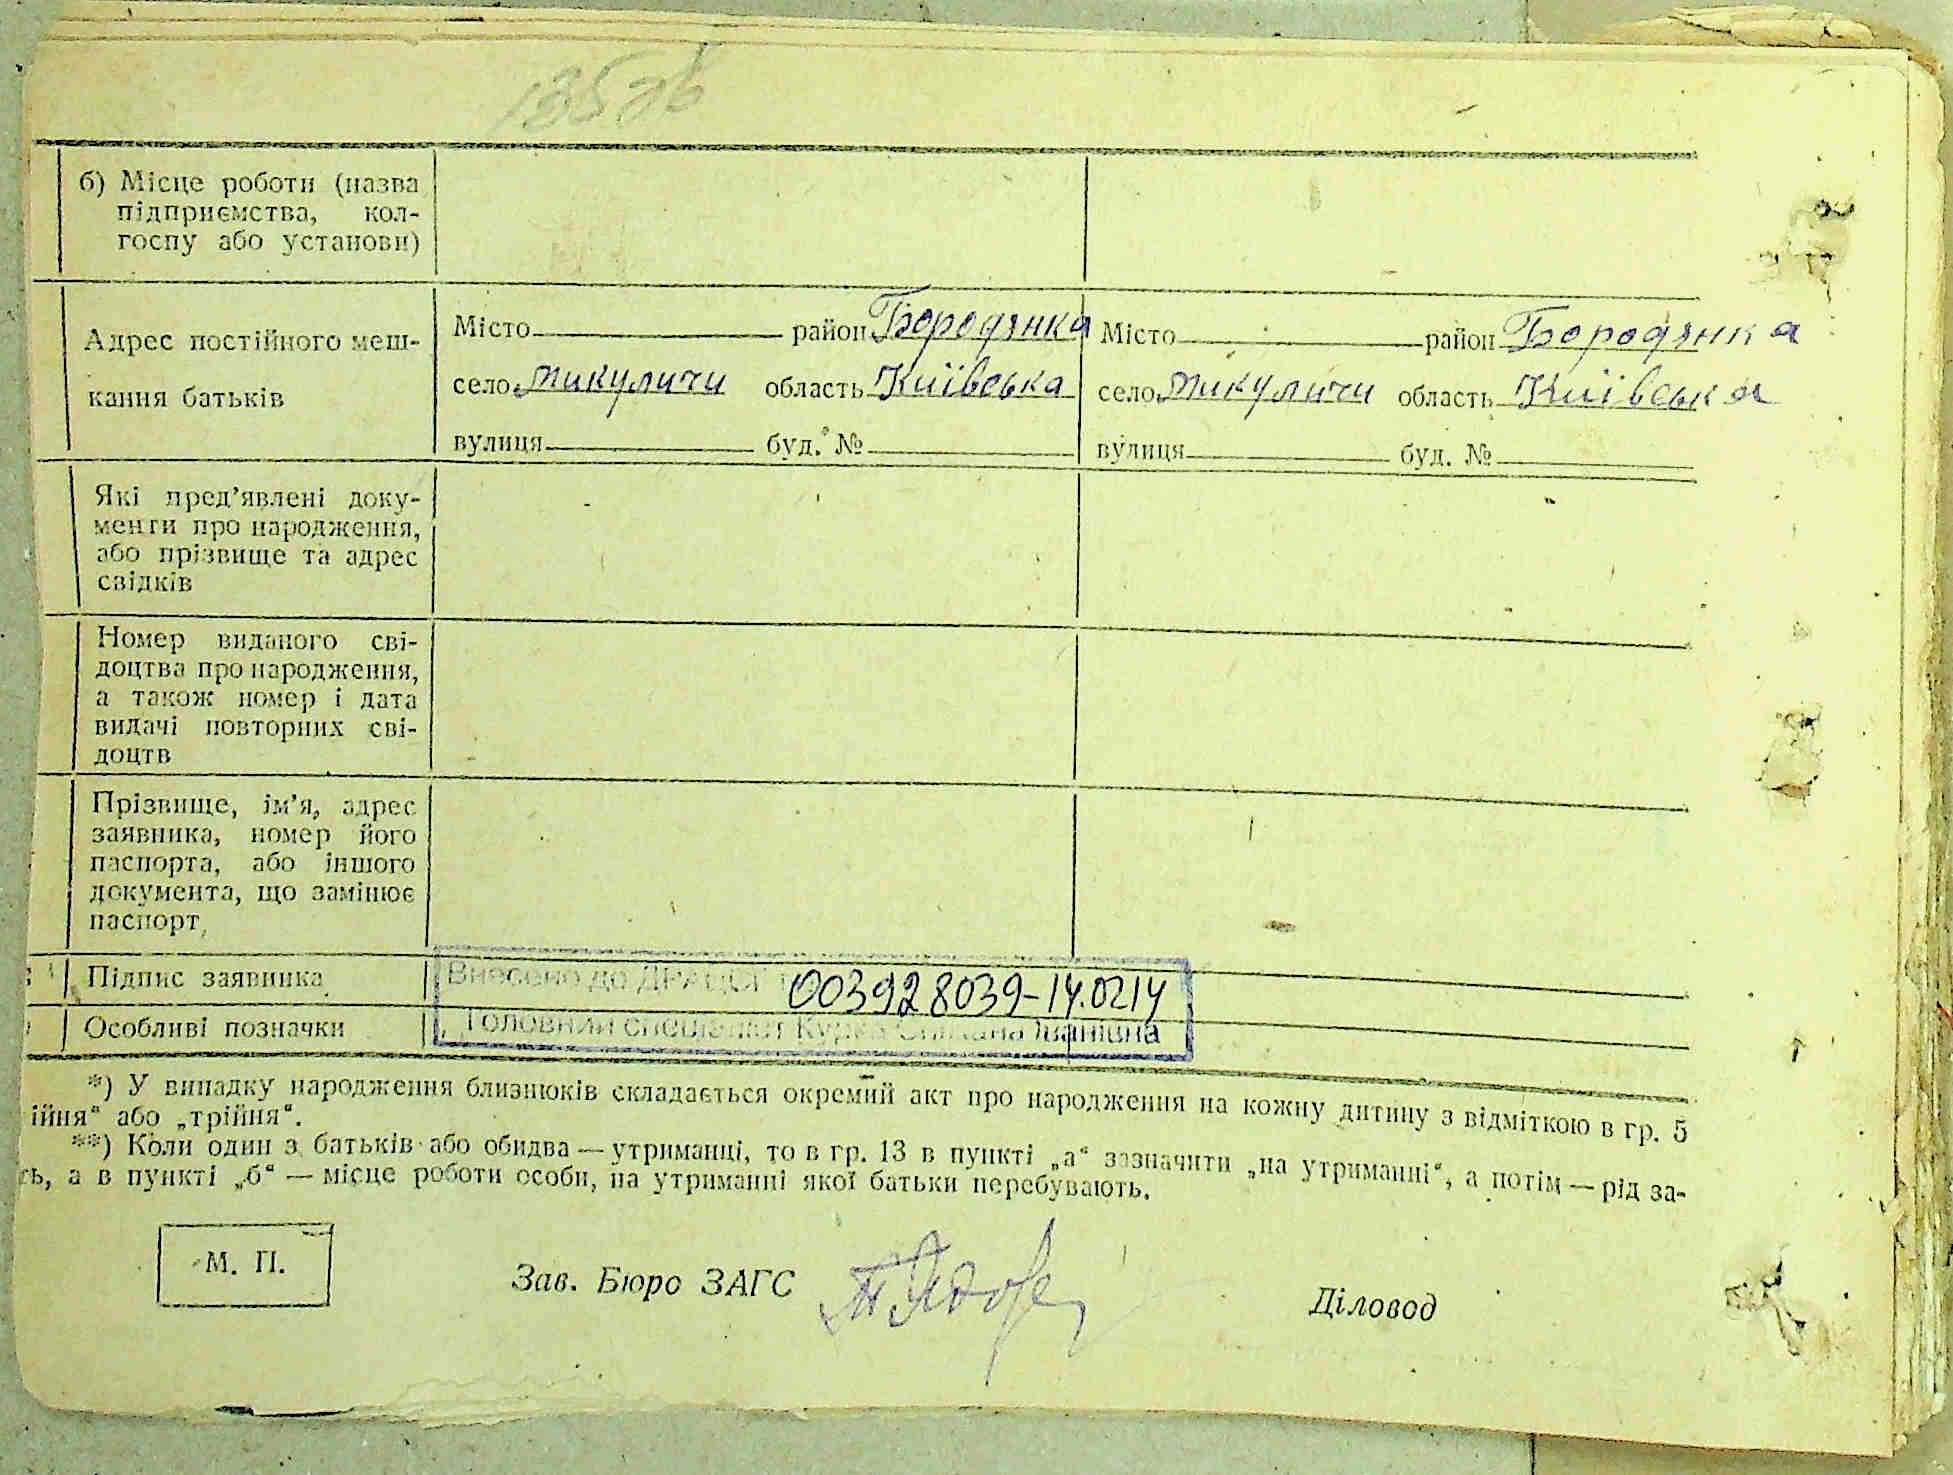 135 зв
б) Місце роботи (назва
підприємства, кол-
госпу або установи)
Адрес постійного меш-
кання батьків
Місто район Бородянка
село Микуличи область Київська
вулиця буд. №
Місто район Бородянка
село Микуличи область Київська
вулиця буд. №
Які пред’явлені доку-
менти про народження,
або прізвище та адрес
свідків
Номер виданого сві-
доцтва про народження,
а також номер і дата
видачі повторних сві-
доцтв
Прізвище, ім’я, адрес
заявника, номер його
паспорта, або іншого
документа, що замінює
паспорт
Підпис заявника
Внесено до ДРАЦСГ 003928039-14.0214
Особливі позначки
Головний спеціаліст Іванівна
*) У випадку народження близнюків складається окремий акт про народження на кожну дитину з відміткою в гр. 5
ійня“ або „трійня“.
**) Коли один з батьків або обидва — утриманці, то в гр. 13 в пункті „а“ зазначити „на утриманні“, а потім — рід за-
ть, а в пункті „б“ — місце роботи особи, на утриманні якої батьки перебувають.
М. П.
Зав. Бюро ЗАГС
Діловод